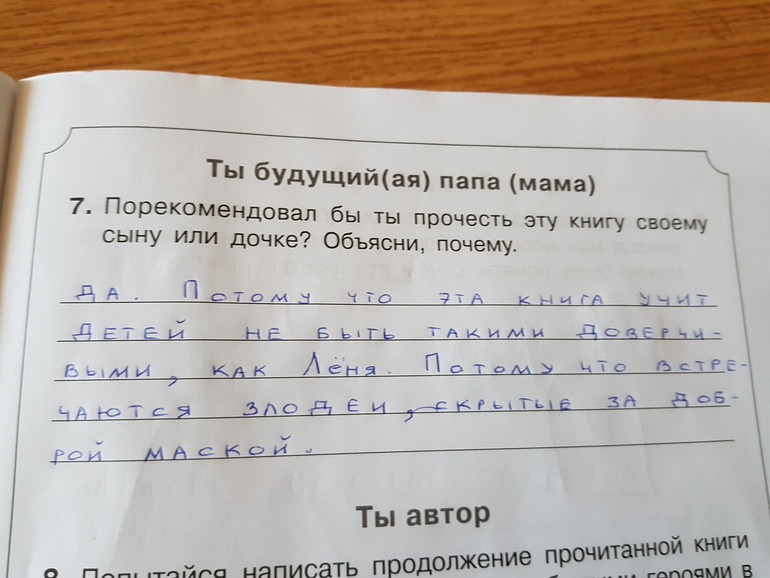 Ты будущий(ая) папа (мама)
7. Порекомендовал бы ты прочесть эту книгу своему
сыну или дочке? Объясни, почему.
ДА. Потому что эта книга учит
детей не быть такими доверчи-
выми, как Лёня. Потому что встре-
чаются злодеи, скрытые за доб-
рой маской.
Ты автор
8. Попытайся написать продолжение прочитанной книги
героями в